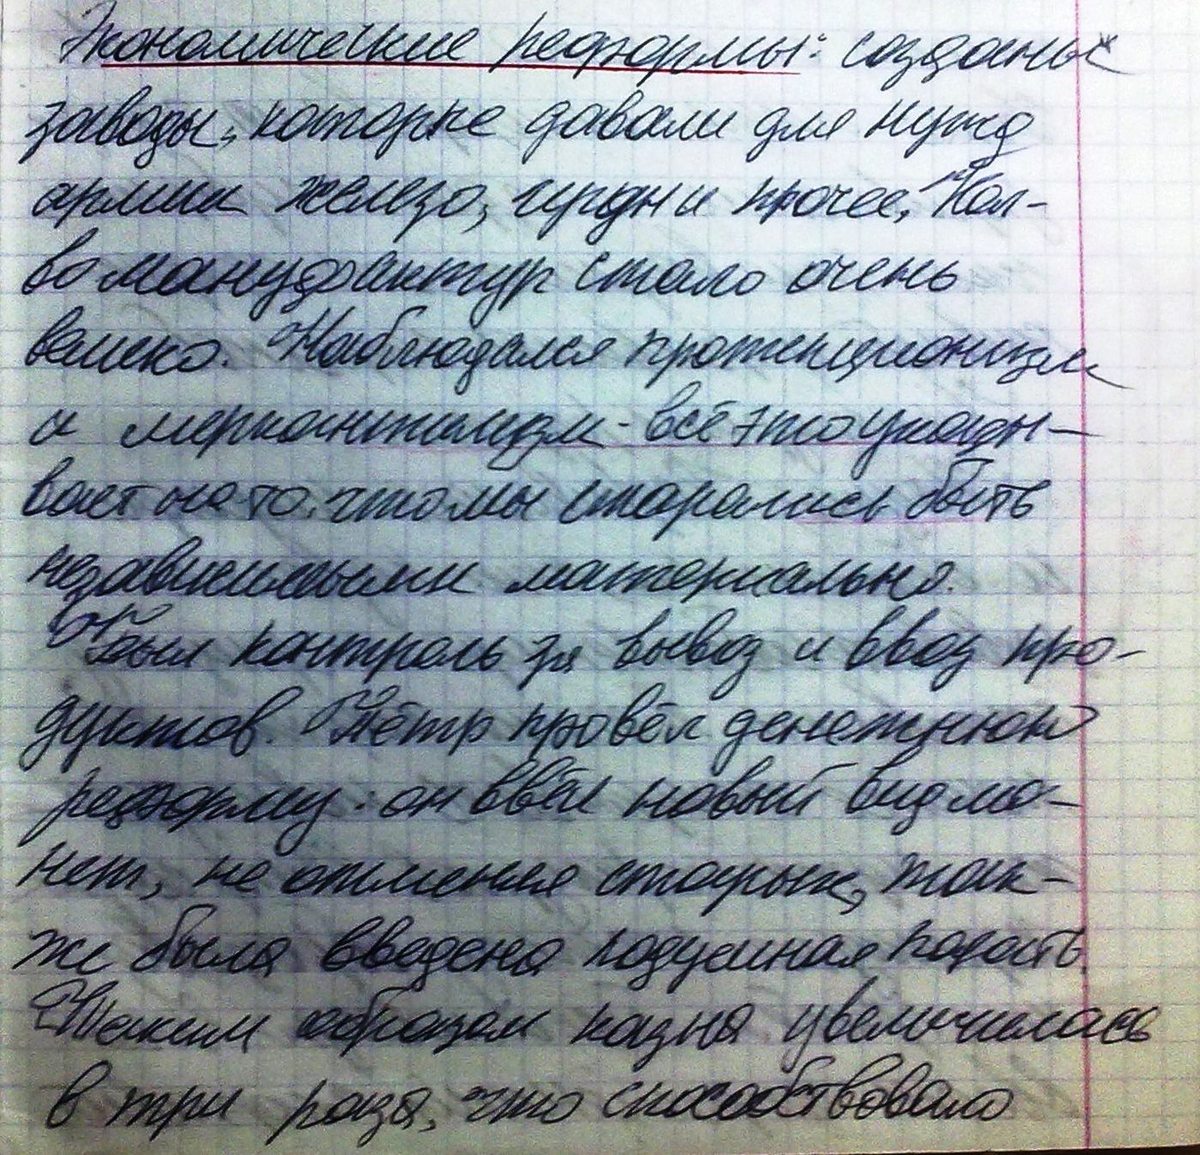 Экономические реформы: созданы
заводы, которые давали для нужд
армии железо, и прочее. Кол-
во мануфактур стало очень
велико. Наблюдался протекционизм
и меркантилизм - всё это указы-
вает на то, что мы старались быть
независимыми материально.
Был контроль за вывоз и ввоз про-
дуктов. Пётр провёл денежную
реформу: он ввёл новый вид мо-
нет, не отменяя старых, так-
же была введена подушная подать.
Таким образом казна увеличилась
в три раза, что способствовало